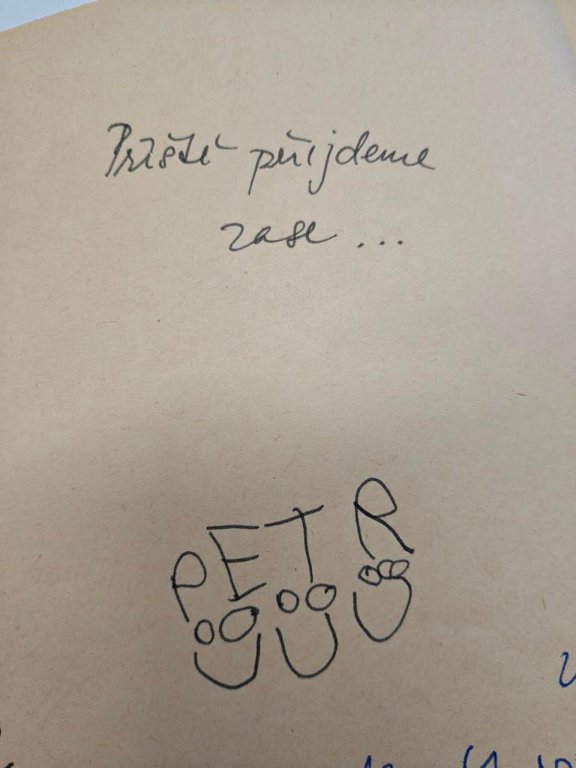 Příště přijdeme
zase ...
PETR